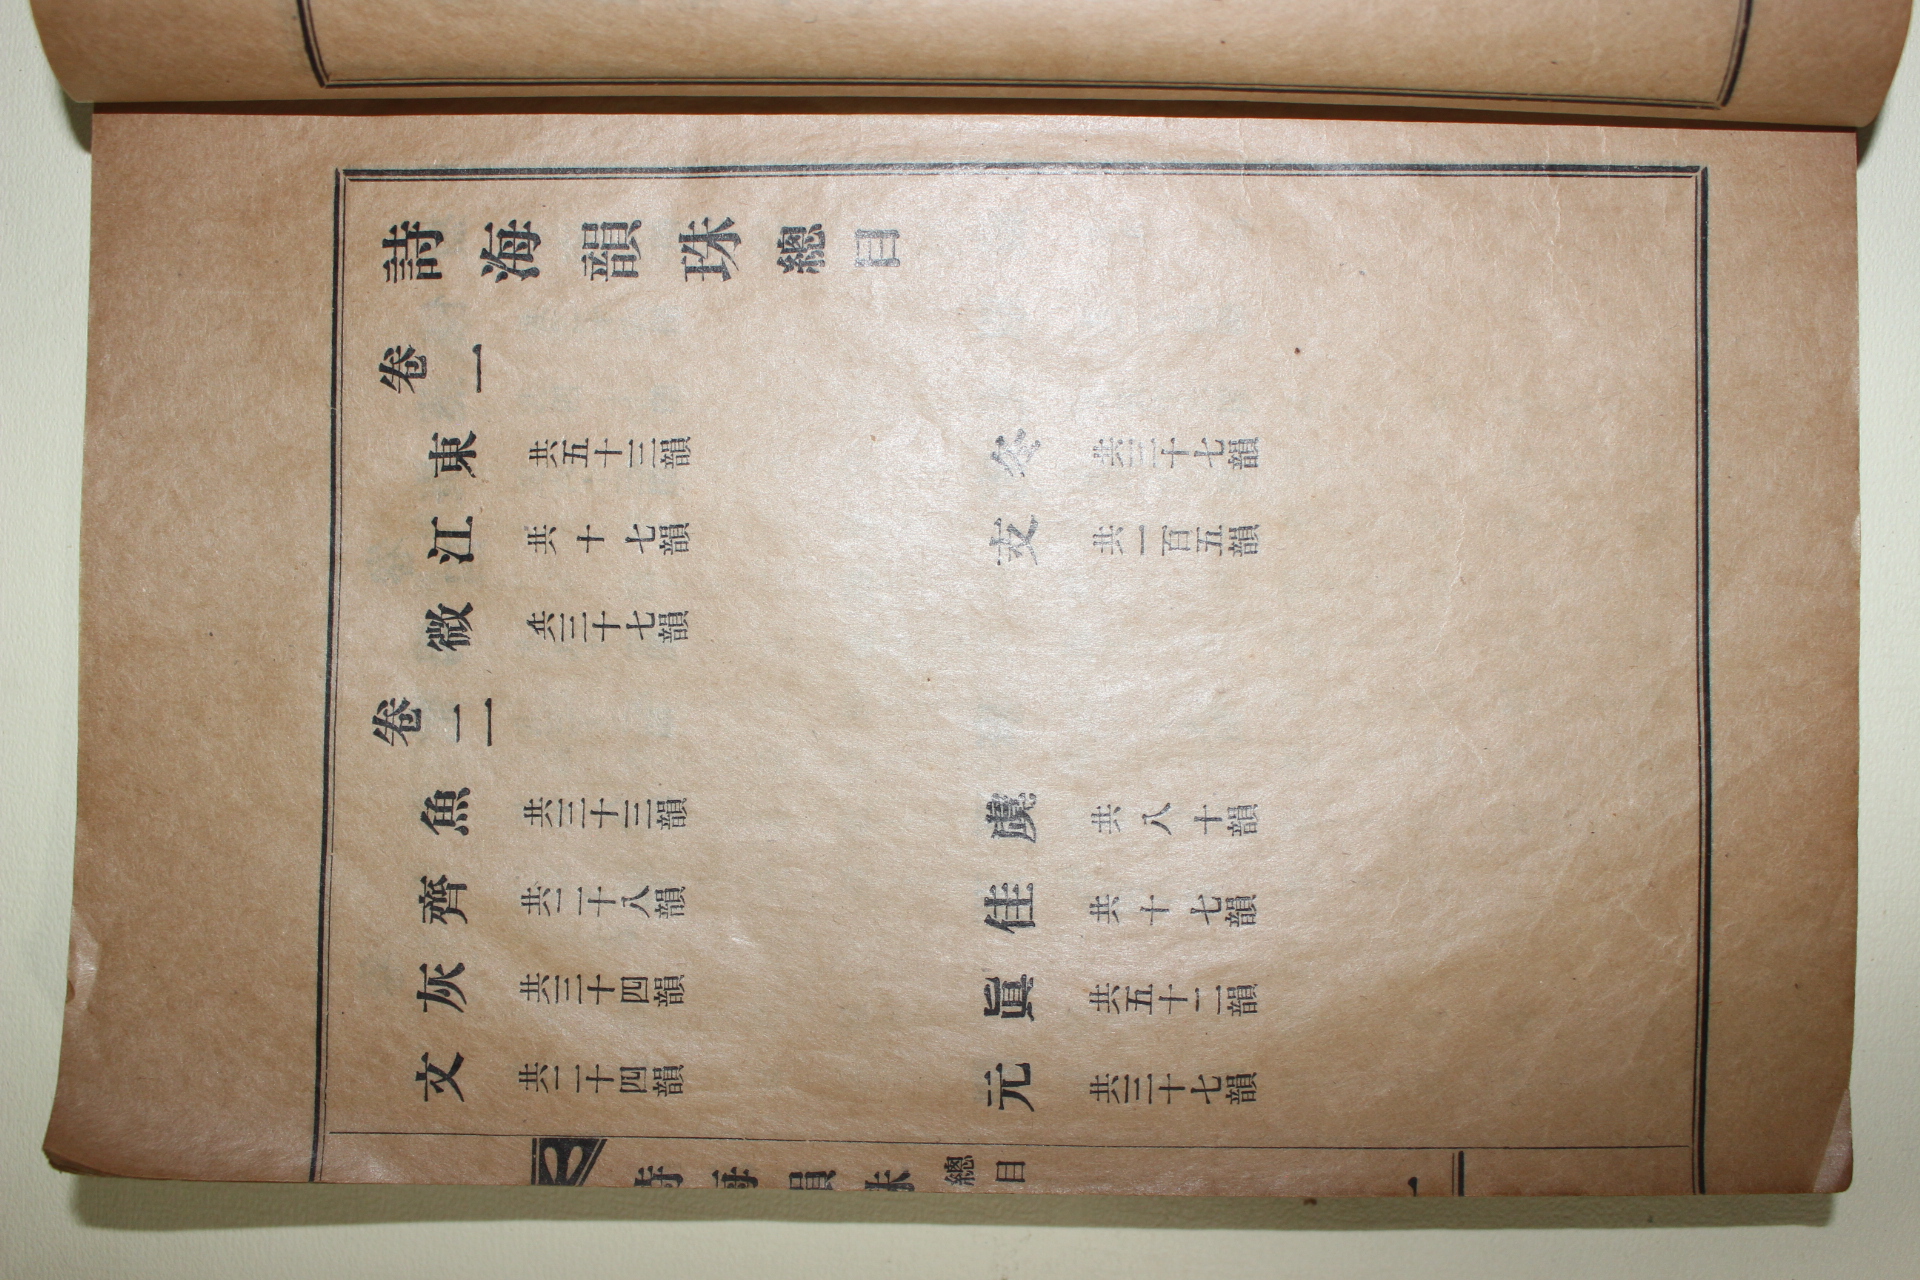 詩海韻珠總目
卷一
東 共五十三韻 冬 共三十七韻
江 共十七韻 支 共一百五韻
微 共三十七韻
卷二
魚 共三十三韻 虞 共八十韻
齊 共二十八韻 佳 共十七韻
灰 共三十四韻 眞 共五十二韻
文 共二十四韻 元 共三十七韻
詩海韻珠 總目 一